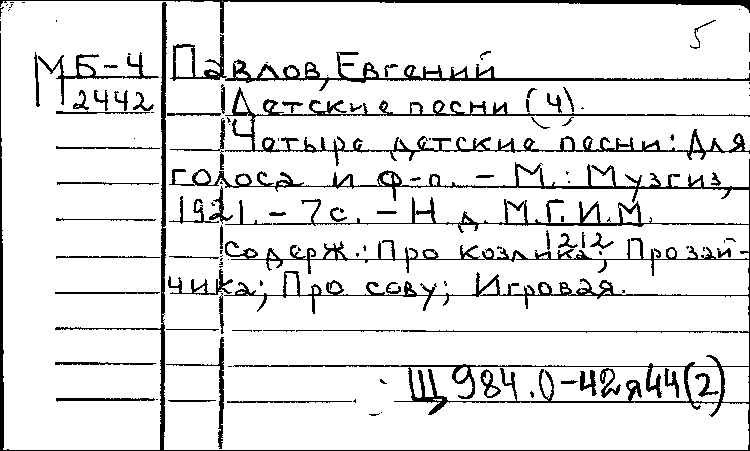 5
МБ-4 Павлов, Евгений
2442 Детские песни (4).
Четыре детские песни: Для
голоса и ф-п. - М.: Музгиз,
1921. - 7 с. - Н.д. М.Г.И.М.
1212
Содерж.: Про козлика; Про зай-
чика; Про сову; Игровая.
Щ 984.0-42я44(2)